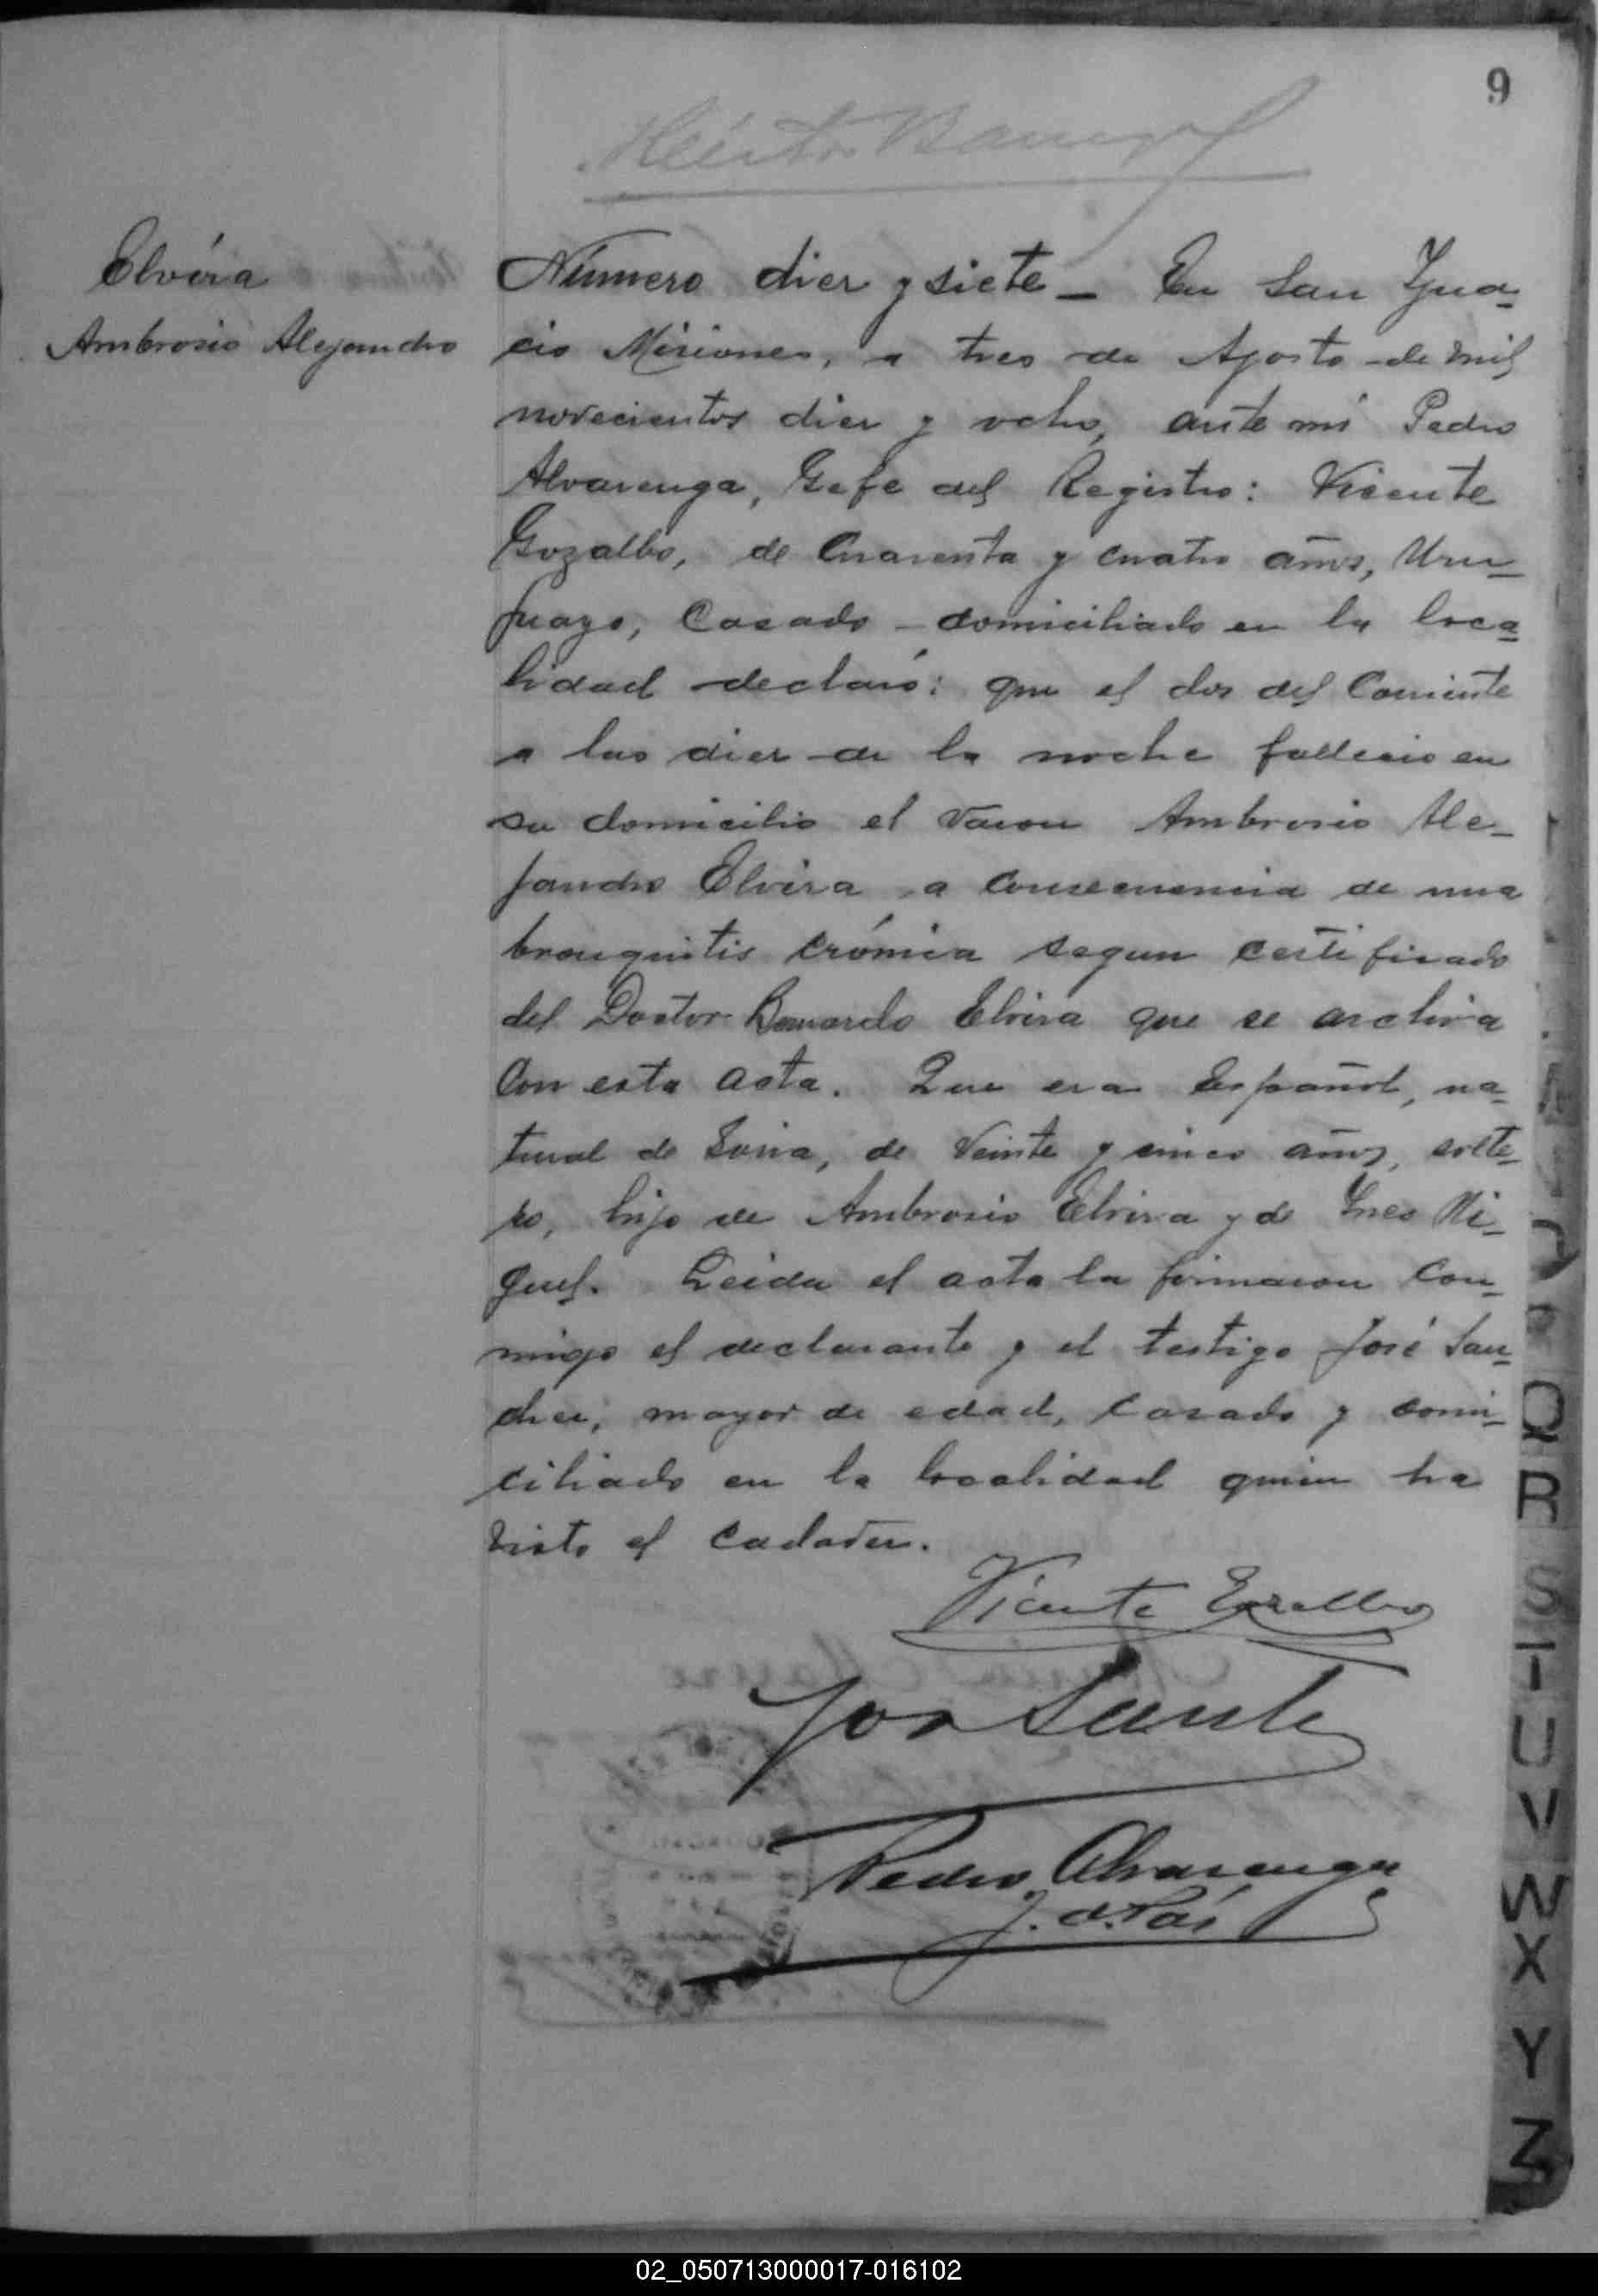 9
Elvira
Ambrosio Alejandro
Número diez y siete – En San Igna-
cio Misiones, a tres de Agosto de mil
novecientos diez y ocho, ante mi Pedro
Alvarenga, Gefe del Registro: Vicente
Gozalbo, de Cuarenta y cuatro años, Uru-
guayo, Casado domiciliado en la loca-
lidad declaró: que el dos del Corriente
a las diez de la noche fallecio en
su domicilio el Varon Ambrosio Ale-
jandro Elvira a Consecuencia de una
bronquitis crónica segun certificado
del Doctor Bernardo Elvira que se archiva
Con esta acta. Que era Español, na-
tural de Soria, de Veinte y cinco años, solte-
ro, hijo de Ambrosio Elvira y de Ines Mi-
guel. Leida el acta la firmaron Con-
migo el declarante y el testigo José San-
chez, mayor de edad, Casado y domi-
ciliado en la localidad quien ha
visto el cadaver.
Vicente Gozalbo
Pedro Alvarenga
J. d. Pas
Q
R
S
T
U
V
W
X
Y
Z
02_050713000017-016102